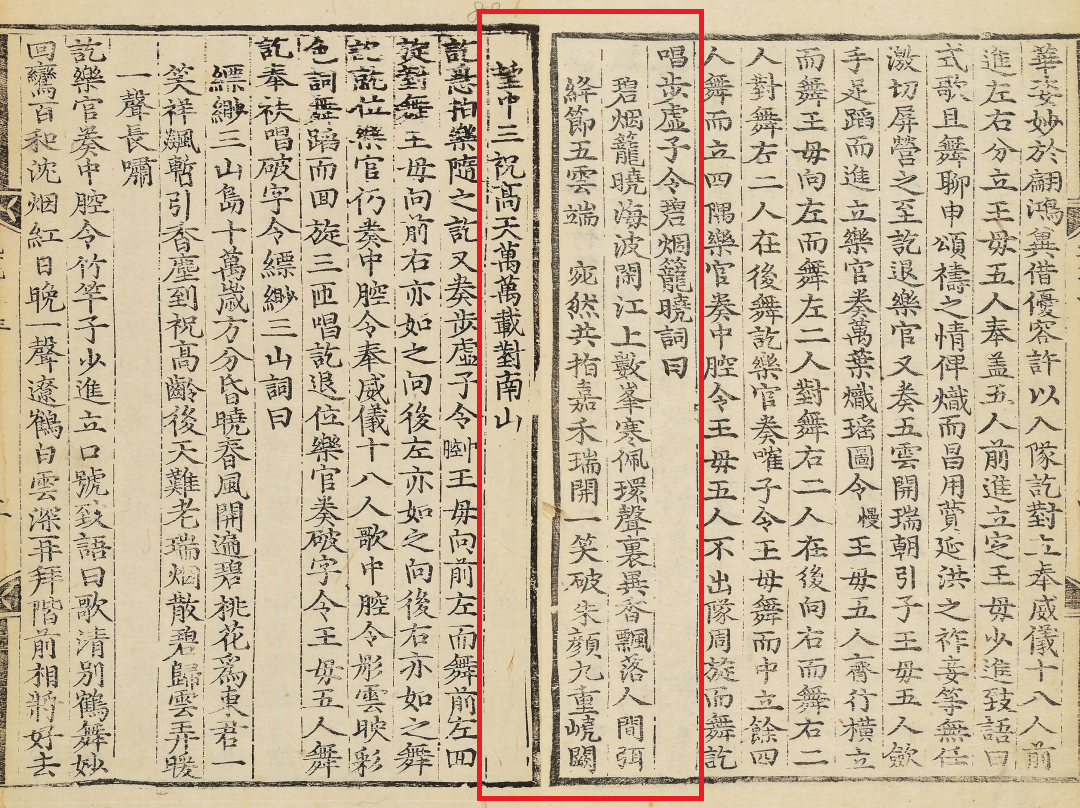 華姿妙於翩鴻冀借優容許以入隊訖對立奉威儀十八人前
進左右分立王母五人奉盖五人前進立定王母少進致語曰
式歌且舞聊申頌禱之情俾熾而昌用贊延洪之祚妾等無任
激切屏營之至訖退樂官又奏五雲開瑞朝引子王母五人歛
手足蹈而進立樂官奏萬葉熾瑤圖令慢王母五人齊行橫立
而舞王母向左而舞左二人對舞右二人在後向右而舞右二
人對舞左二人在後舞訖樂官奏嗺子令王母舞而中立餘四
人舞而立四隅樂官奏中腔令王母五人不出隊周旋而舞訖
唱步虛子令碧烟籠曉詞曰
碧烟籠曉海波閑江上數峯寒佩環聲裏異香飄落人間弭
絳節五雲端 宛然共指嘉禾瑞開一笑破朱顔九重嶢闕
望中三祝高天萬萬載對南山
訖擊拍樂隨之訖又奏步虛子令中腔王母向前左而舞前左回
旋對舞王母向前右亦如之向後左亦如之向後右亦如之舞
訖就位樂官仍奏中腔令奉威儀十八人歌中腔令彤雲映彩
色詞舞蹈而回旋三匝唱訖退位樂官奏破字令王母五人舞
訖奉袂唱破字令縹緲三山詞曰
縹緲三山島十萬歲方分昏曉春風開遍碧桃花爲東君一
笑祥飆暫引香塵到祝高齡後天難老瑞烟散碧歸雲弄暖
一聲長嘯
訖樂官奏中腔令竹竿子少進立口號致語曰歌清別鶴舞妙
回鸞百和沈烟紅日晚一聲遼鶴白雲深再拜階前相將好去